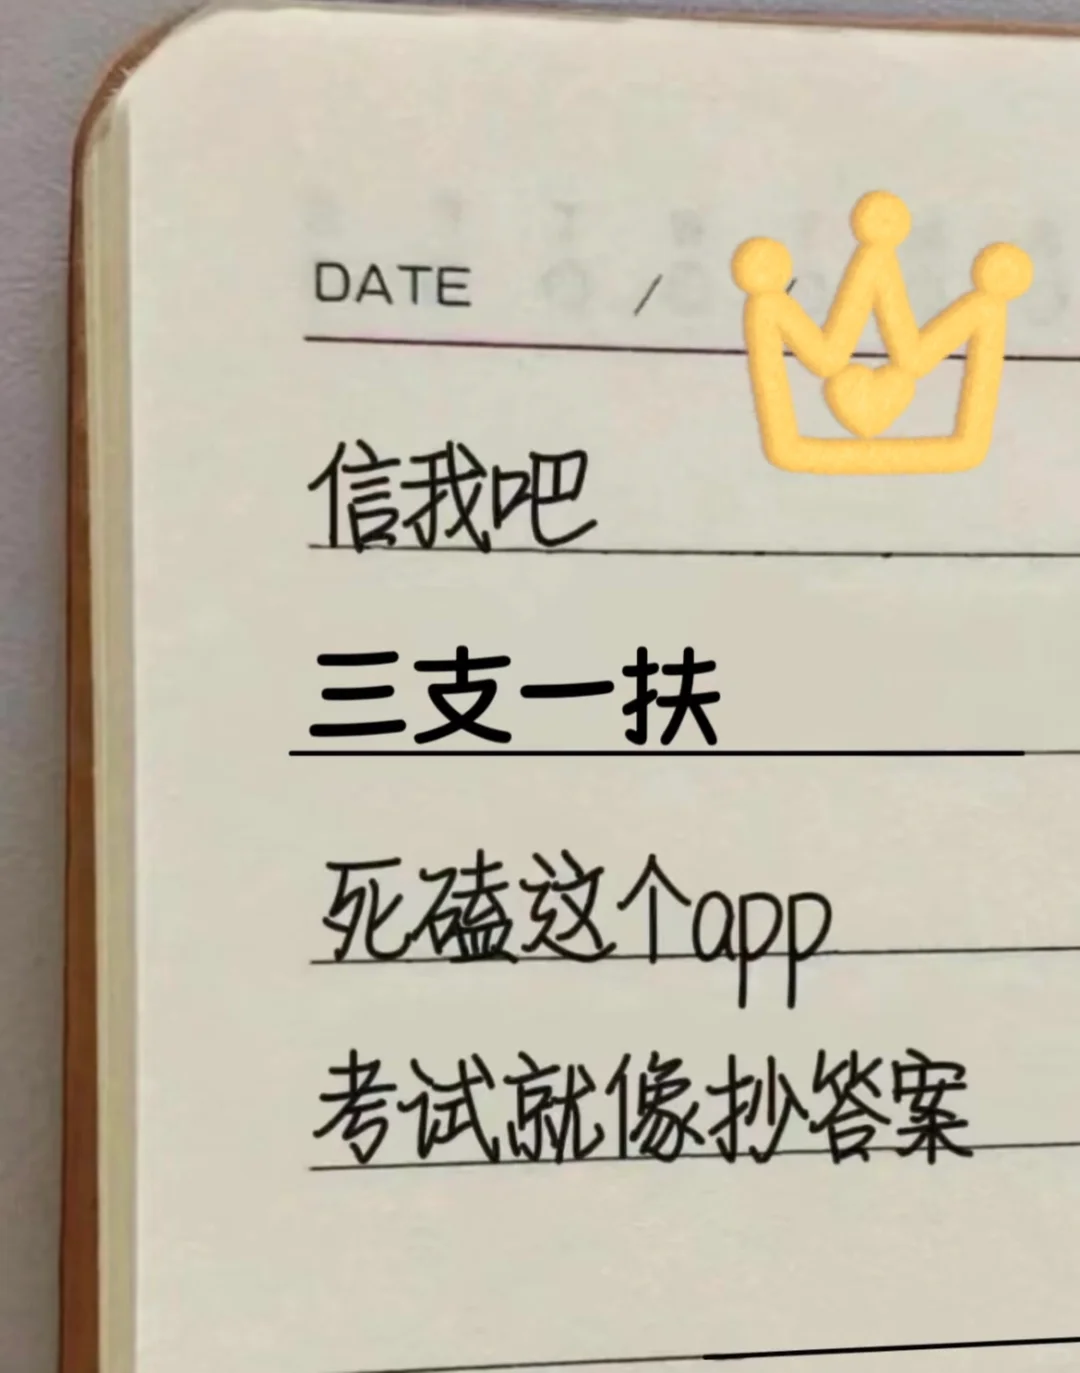 DATE / /
信我吧
三支一扶
死磕这个app
考试就像抄答案